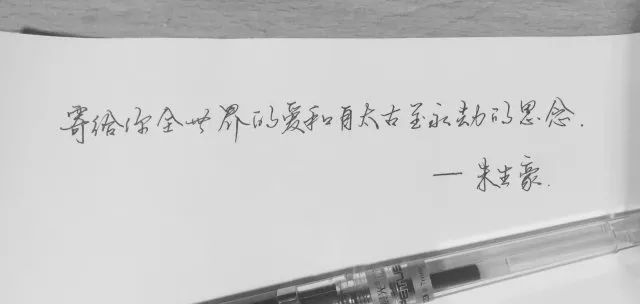 寄给你全世界的爱和自太古至永劫的思念.
— 朱生豪.